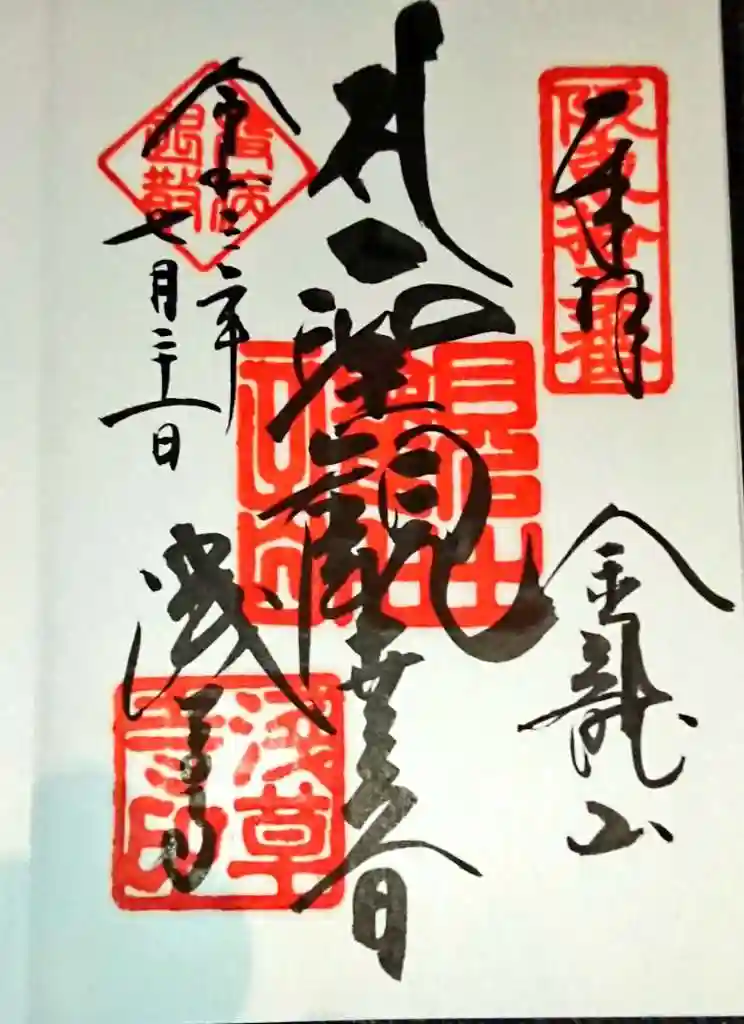 奉拝
阪東拾三番
金龍山
聖観世音
令和三年
七月二十一日
浅草寺
浅草寺印